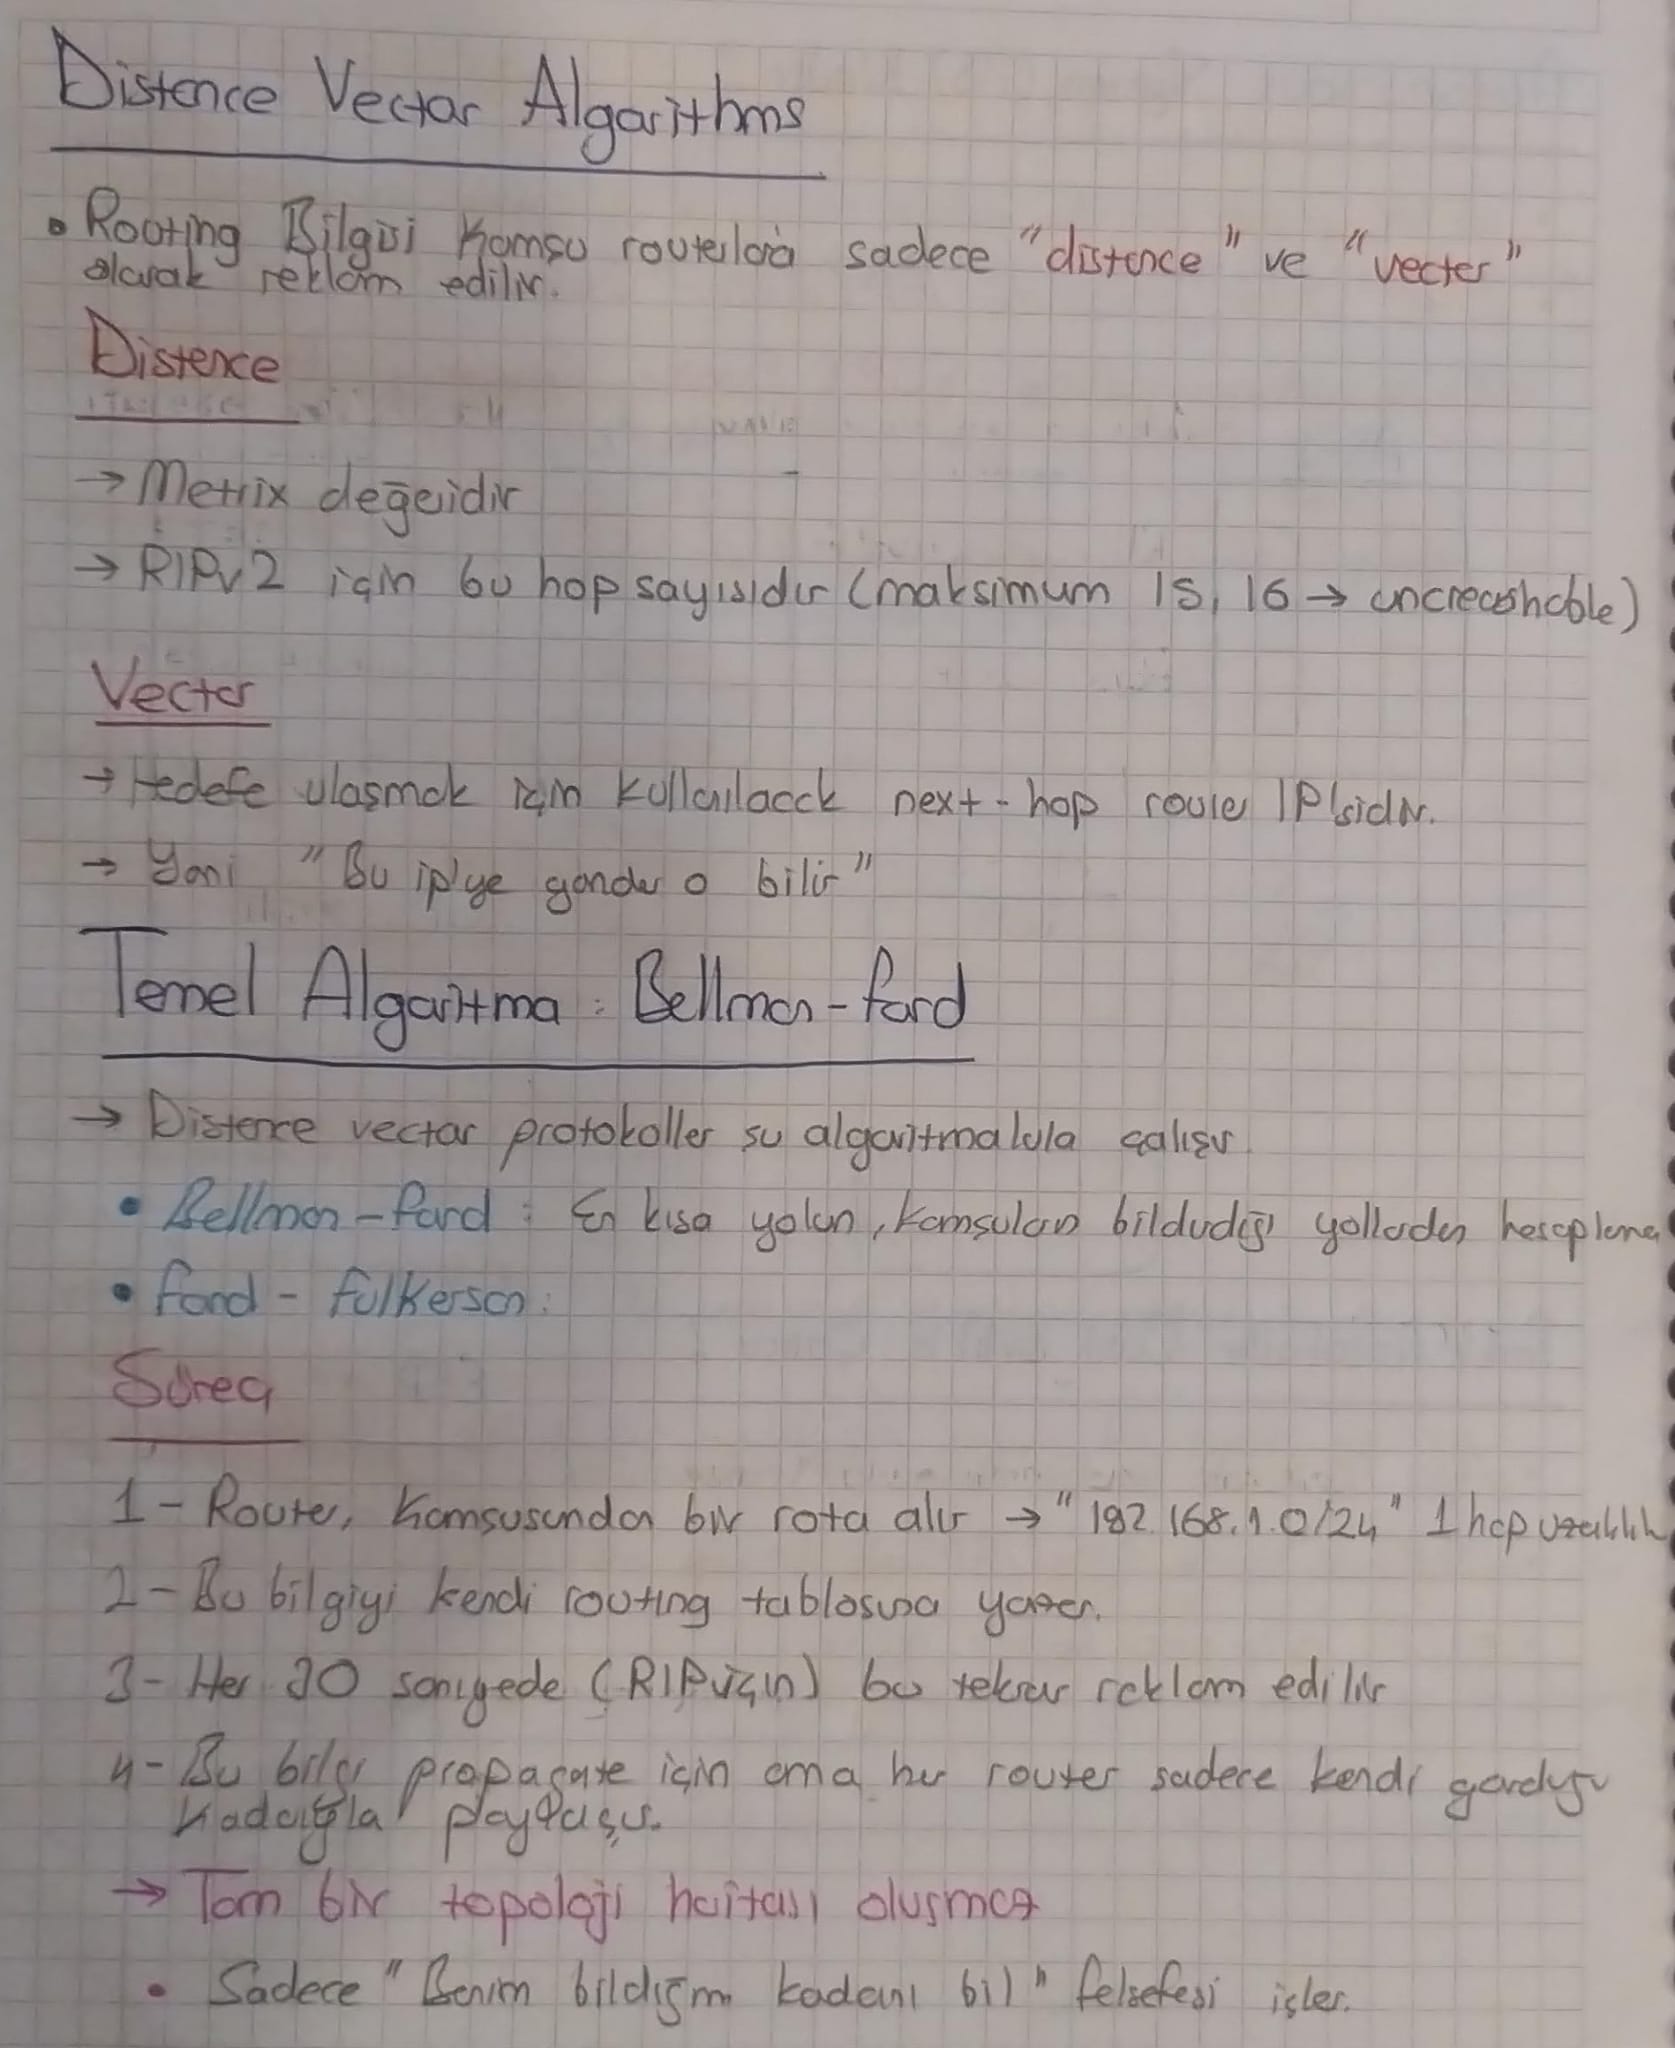 Distence Vector Algorithms
• Routing Bilgisi Komşu routerlara sadece "distence" ve "vector"
olarak reklam edilir.
Distence
→ Metrix değeridir
→ RIPv2 için bu hop sayısıdır (maksimum 15, 16 → uncreashable)
Vector
→ Hedefe ulaşmak için kullanılacak next-hop router IP'sidir.
→ Yani "Bu ip'ye gönder o bilir"
Temel Algoritma : Bellman-ford
→ Distence vector protokoller şu algoritmalarla çalışır
• Bellman-ford : En kısa yolun, komşuların bildirdiği yollardan hesaplama
• ford - fulkerson :
Süreç
1- Router, Komşusundan bir rota alır → "192.168.1.0/24" 1 hop uzaklık
2- Bu bilgiyi kendi routing tablosuna yazar.
3- Her 30 saniyede (RIP için) bu tekrar reklam edilir
4- Bu bilgi propagate için ama her router sadece kendi gördüğü
kadarıyla paylaşır.
→ Tam bir topoloji haritası oluşmaz
• Sadece "Benim bildiğim kadarını bil" felsefesi işler.